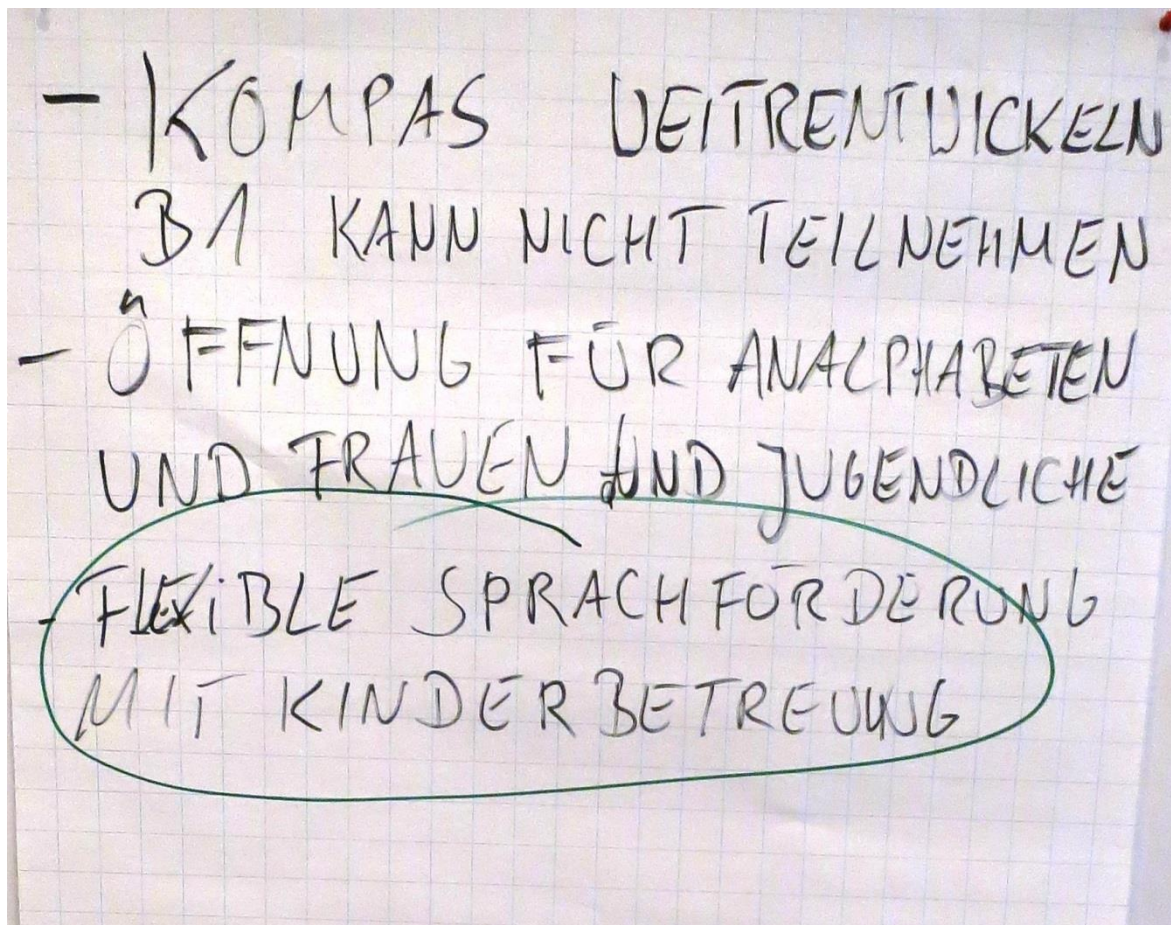 - KOMPAS WEITRENTWICKELN
B1 KANN NICHT TEILNEHMEN
- ÖFFNUNG FÜR ANALPHABETEN
UND FRAUEN UND JUGENDLICHE
- FLEXiBLE SPRACHFÖRDERUNG
MIT KINDERBETREUUNG